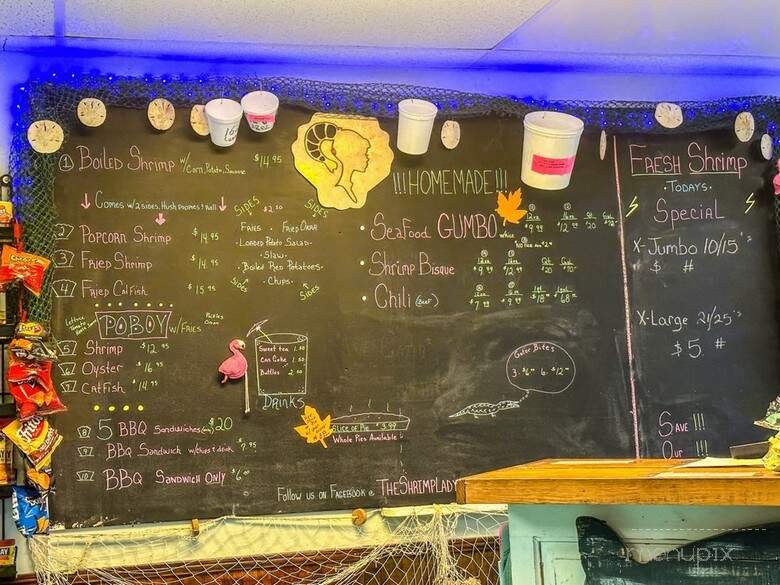 1 BOILED SHRIMP W/ CORN, POTATO, SAUSAGE $14.95
COMES W/ 2 SIDES, HUSH
2 POPCORN SHRIMP $14.95
3 FRIED SHRIMP $14.95
4 FRIED CATFISH $15.95
SIDES $2.50 SIDES
FRIES FRIED OKRA
LOADED POTATO SALAD
SLAW
BOILED RED POTATOES
CHIPS
SIDES SIDES
POBOY W/ FRIES
5 SHRIMP $12.95
6 OYSTER $16.95
7 CATFISH $14.95
8 5 BBQ SANDWICHES $20
9 BBQ SANDWICH W/ CHIPS & DRINK 9.95
10 BBQ SANDWICH ONLY $6
SWEET TEA 1.50
CAN COKE 1.50
BOTTLES 2.00
DRINKS
SLICE OF PIE $3.99
WHOLE PIES AVAILABLE
FOLLOW US ON FACEBOOK @ THESHRIMPLADY
!!!HOMEMADE!!!
• SEAFOOD GUMBO
• SHRIMP BISQUE
• CHILI (BEEF)
GATOR BITES
3-$6 6-$12
FRESH SHRIMP
TODAYS
SPECIAL
X-JUMBO 10/15's
$ #
X-LARGE 21/25's
$5. #
SAVE !!!
OUR !!!
menupix